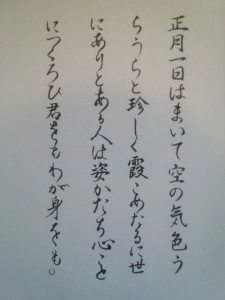 正月一日はまいて空の気色う
らうらと珍しく霞こめたるに世
にありとある人は姿かたち心こと
につくろひ君をもわが身をも。